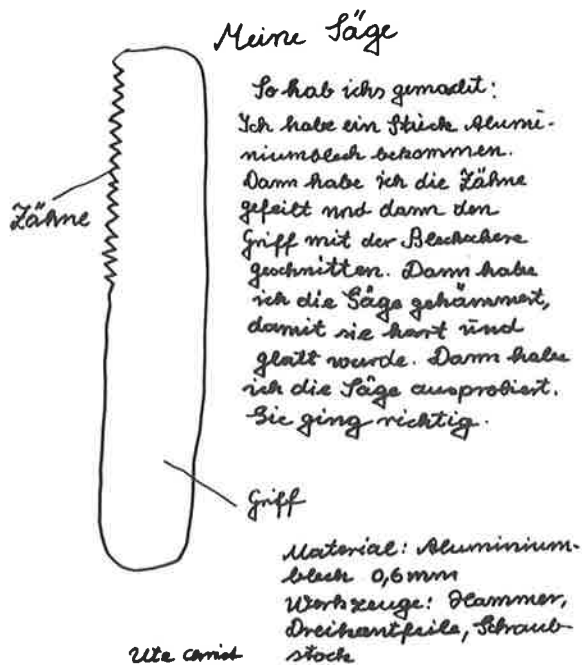 Meine Säge
So hab ichs gemacht:
Ich habe ein Stück Alumi-
niumblech bekommen.
Dann habe ich die Zähne
gefeilt und dann den
Griff mit der Blechschere
geschnitten. Dann habe
ich die Säge gehämmert,
damit sie hart und
glatt wurde. Dann habe
ich die Säge ausprobiert.
Sie ging richtig.
Zähne
Griff
Material: Aluminium-
blech 0,6 mm
Werkzeuge: Hammer,
Dreikantfeile, Schraub-
stock
Ute